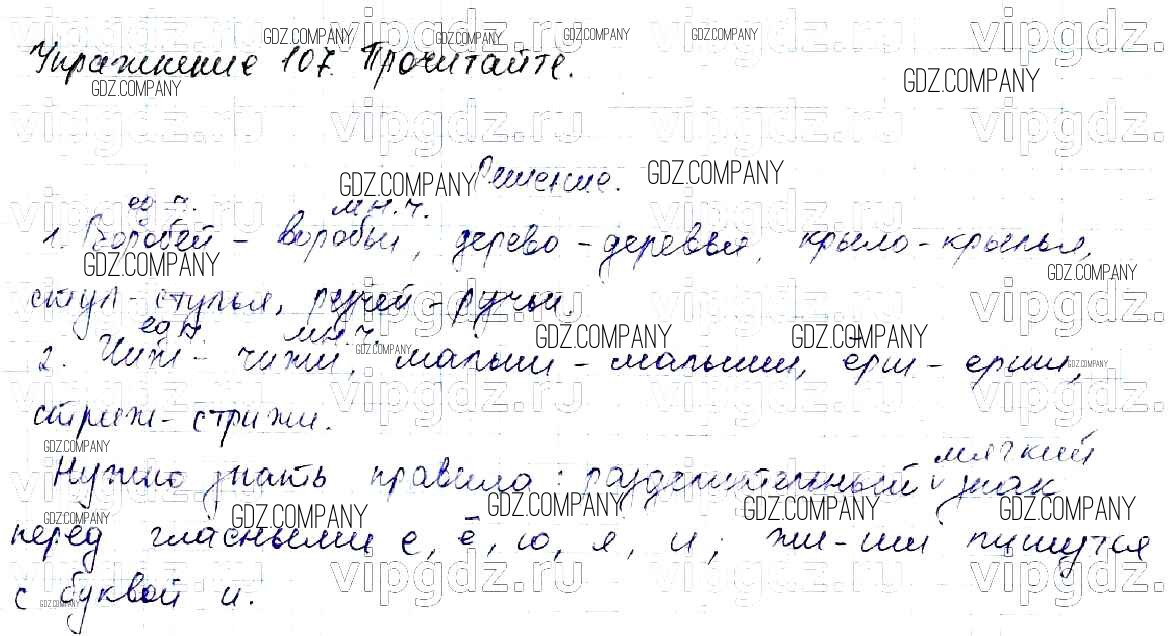 Упражнение 107. Прочитайте.
Решение.
ед.ч. мн.ч.
1. Воробей - воробьи, дерево - деревья, крыло - крылья,
стул - стулья, ручей - ручьи.
ед.ч. мн.ч.
2. Чиж - чижи, малыш - малыши, ёрш - ерши,
стриж - стрижи.
мягкий
Нужно знать правила: разделительный знак
перед гласными е, ё, ю, я, и; жи-ши пишутся
с буквой и.
GDZ.COMPANY
vipgdz.ru